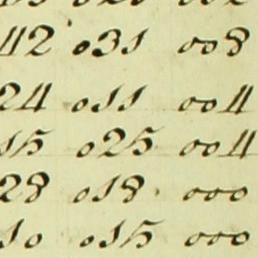 42 031 008
24 011 004
15 025 004
28 018 000
10 015 000